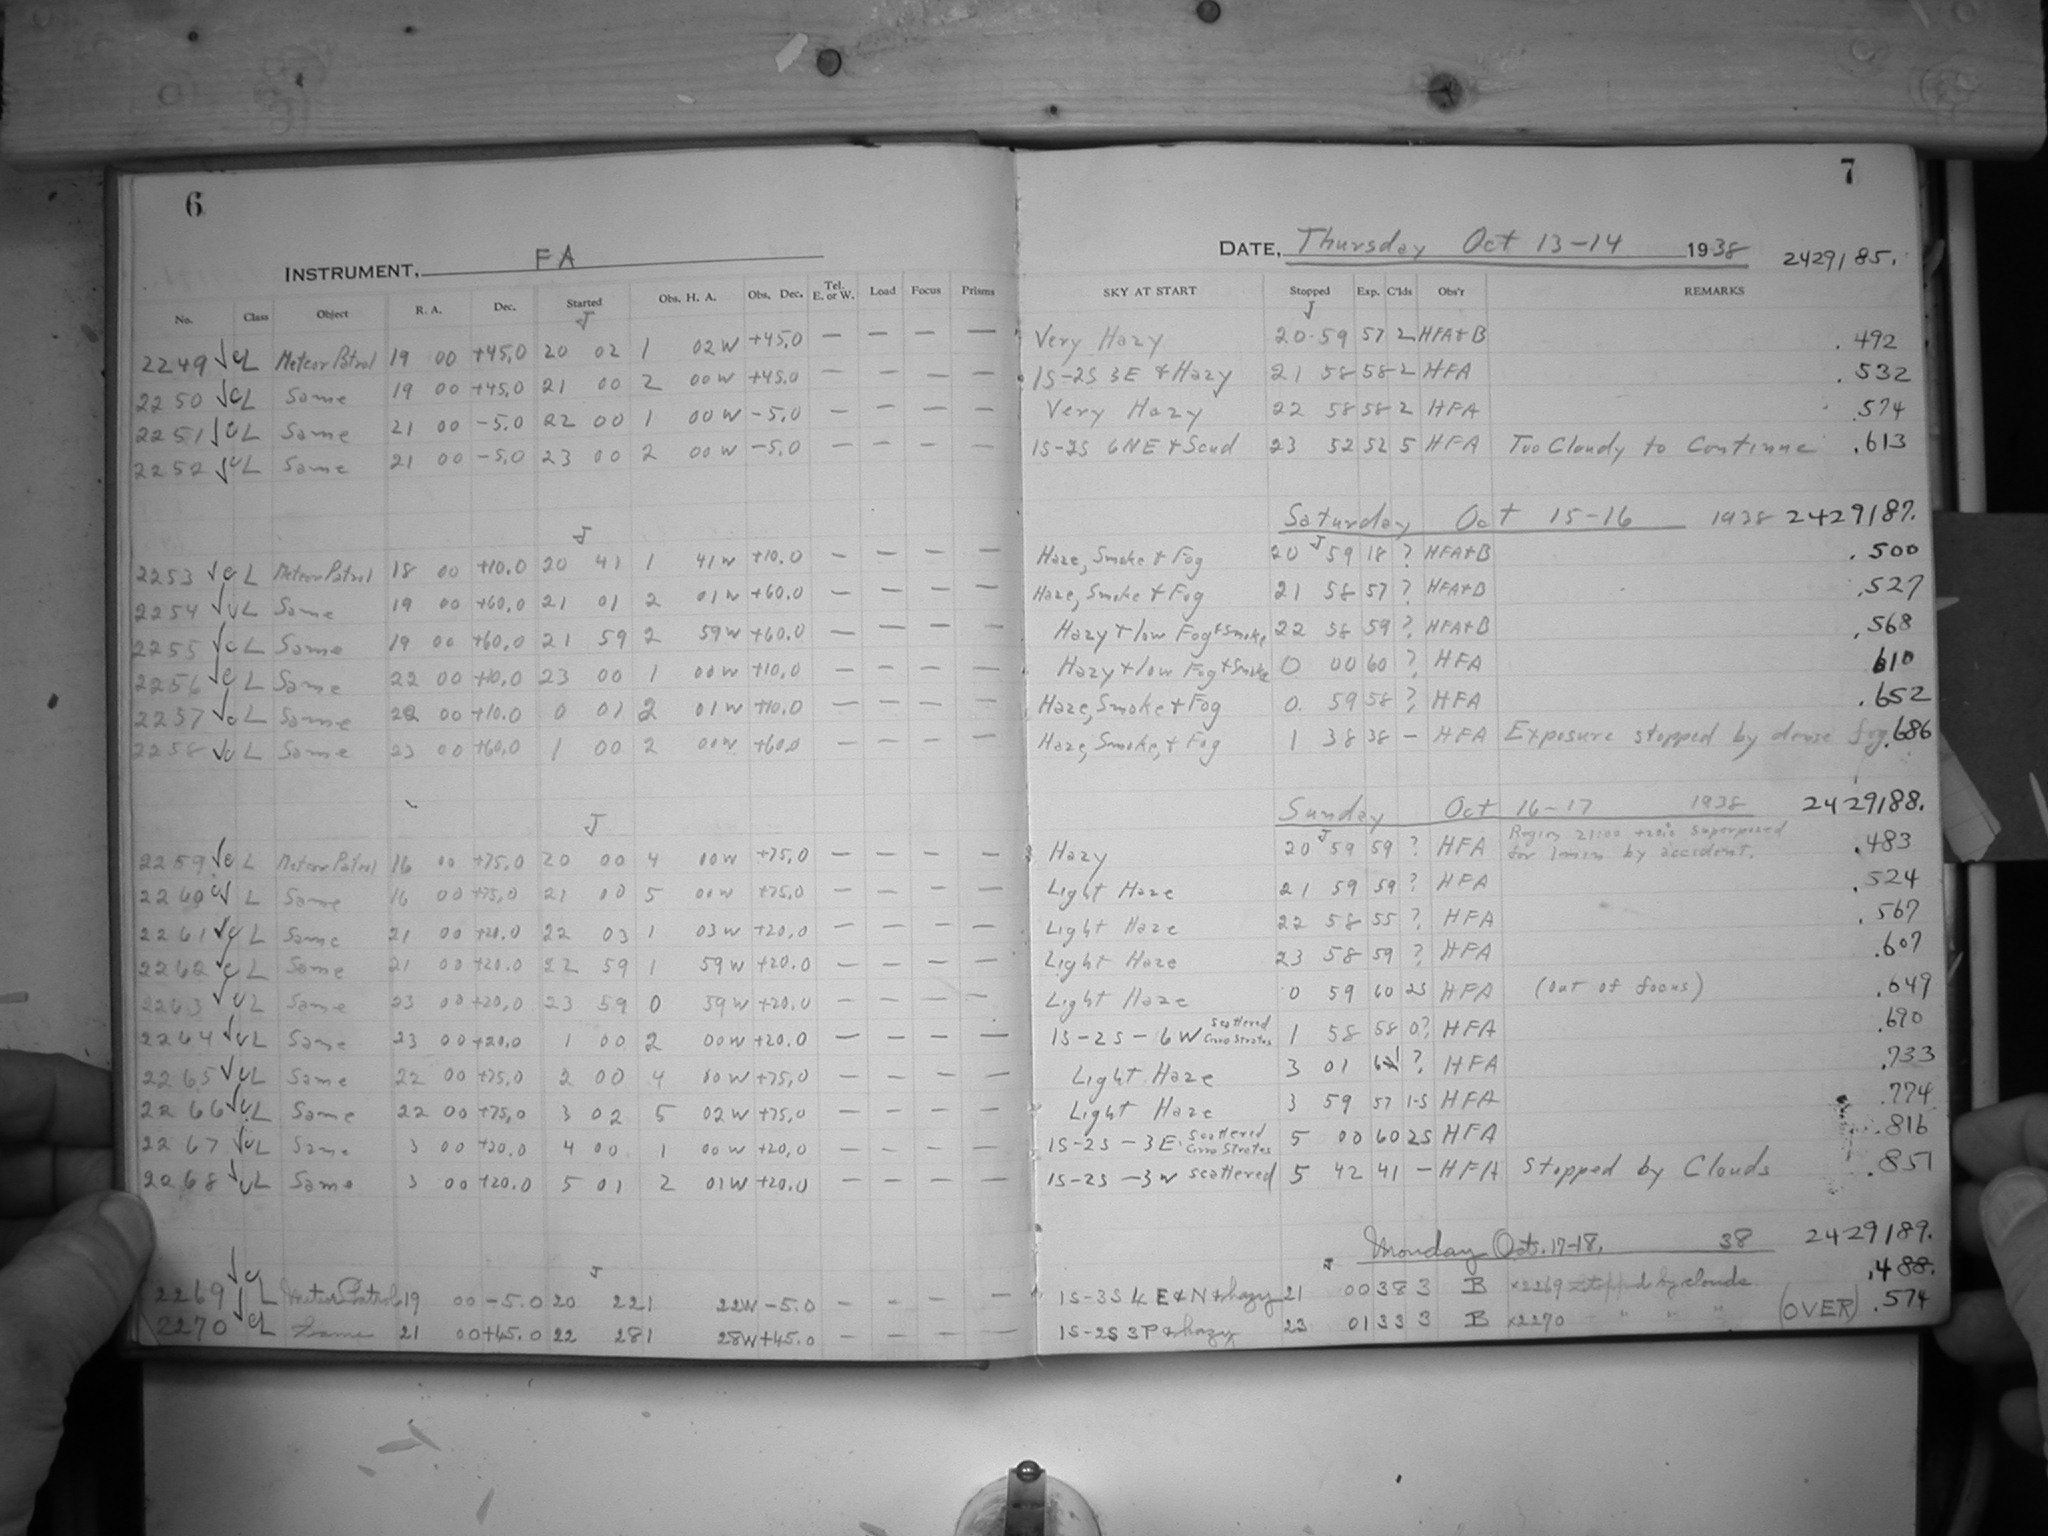 6
INSTRUMENT, FA
No. Class Object R. A. Dec. Started Obs. H. A. Obs. Dec. Tel. E. or W. Load Focus Prisms
J
2249 √ cL Meteor Patrol 19 00 +45.0 20 02 1 02W +45.0 — — — —
2250 √ cL Same 19 00 +45.0 21 00 2 00W +45.0 — — — —
2251 √ cL Same 21 00 -5.0 22 00 1 00W -5.0 — — — —
2252 √ cL Same 21 00 -5.0 23 00 2 00W -5.0 — — — —
J
2253 √ cL Meteor Patrol 18 00 +10.0 20 41 1 41W +10.0 — — — —
2254 √ cL Same 19 00 +60.0 21 01 2 01W +60.0 — — — —
2255 √ cL Same 19 00 +60.0 21 59 2 59W +60.0 — — — —
2256 √ cL Same 22 00 +10.0 23 00 1 00W +10.0 — — — —
2257 √ cL Same 22 00 +10.0 0 01 2 01W +10.0 — — — —
2258 √ cL Same 23 00 +60.0 1 00 2 00W +60.0 — — — —
J
2259 √ cL Meteor Patrol 16 00 +75.0 20 00 4 00W +75.0 — — — —
2260 √ cL Same 16 00 +75.0 21 00 5 00W +75.0 — — — —
2261 √ cL Same 21 00 +20.0 22 03 1 03W +20.0 — — — —
2262 √ cL Same 21 00 +20.0 22 59 1 59W +20.0 — — — —
2263 √ cL Same 23 00 +20.0 23 59 0 59W +20.0 — — — —
2264 √ cL Same 23 00 +20.0 1 00 2 00W +20.0 — — — —
2265 √ cL Same 22 00 +75.0 2 00 4 00W +75.0 — — — —
2266 √ cL Same 22 00 +75.0 3 02 5 02W +75.0 — — — —
2267 √ cL Same 3 00 +20.0 4 00 1 00W +20.0 — — — —
2268 √ cL Same 3 00 +20.0 5 01 2 01W +20.0 — — — —
J
2269 √ cL Meteor Patrol 19 00 -5.0 20 22 1 22W -5.0 — — — —
2270 √ cL Same 21 00 +45.0 22 28 1 28W +45.0 — — — —
7
DATE, Thursday Oct 13-14 1938 2429185.
SKY AT START Stopped Exp. C'lds Obs'r REMARKS
J
Very Hazy 20 59 57 2 HFA+B .492
1S-2S 3E + Hazy 21 58 58 2 HFA .532
Very Hazy 22 58 58 2 HFA .574
1S-2S 6NE + Scud 23 52 52 5 HFA Too Cloudy to Continue .613
Saturday Oct 15-16 1938 2429187.
J
Haze, Smoke + Fog 20 59 18 ? HFA+B .500
Haze, Smoke + Fog 21 58 57 ? HFA+B .527
Hazy + low Fog + Smoke 22 58 59 ? HFA+B .568
Hazy + low Fog + Smoke 0 00 60 ? HFA .610
Haze, Smoke + Fog 0 59 58 ? HFA .652
Haze, Smoke, + Fog 1 38 38 — HFA Exposure stopped by dense fog .686
Sunday Oct 16-17 1938 2429188.
J
Hazy 20 59 59 ? HFA Region 21:00 +20.0 superposed for 1 min by accident. .483
Light Haze 21 59 59 ? HFA .524
Light Haze 22 58 55 ? HFA .567
Light Haze 23 58 59 ? HFA .607
Light Haze 0 59 60 2S HFA (out of focus) .649
1S-2S-6W scattered Cirro Stratus 1 58 58 0? HFA .690
Light Haze 3 01 61 ? HFA .733
Light Haze 3 59 57 1-S HFA .774
1S-2S-3E scattered Cirro Stratus 5 00 60 2S HFA .816
1S-2S-3W scattered 5 42 41 — HFA Stopped by Clouds .851
Monday Oct. 17-18, 38 2429189.
1S-3S 4 E+N + hazy 21 00 38 3 B x2269 stopped by clouds .488.
1S-2S 3P + hazy 23 01 33 3 B x2270 " " " (OVER) .574